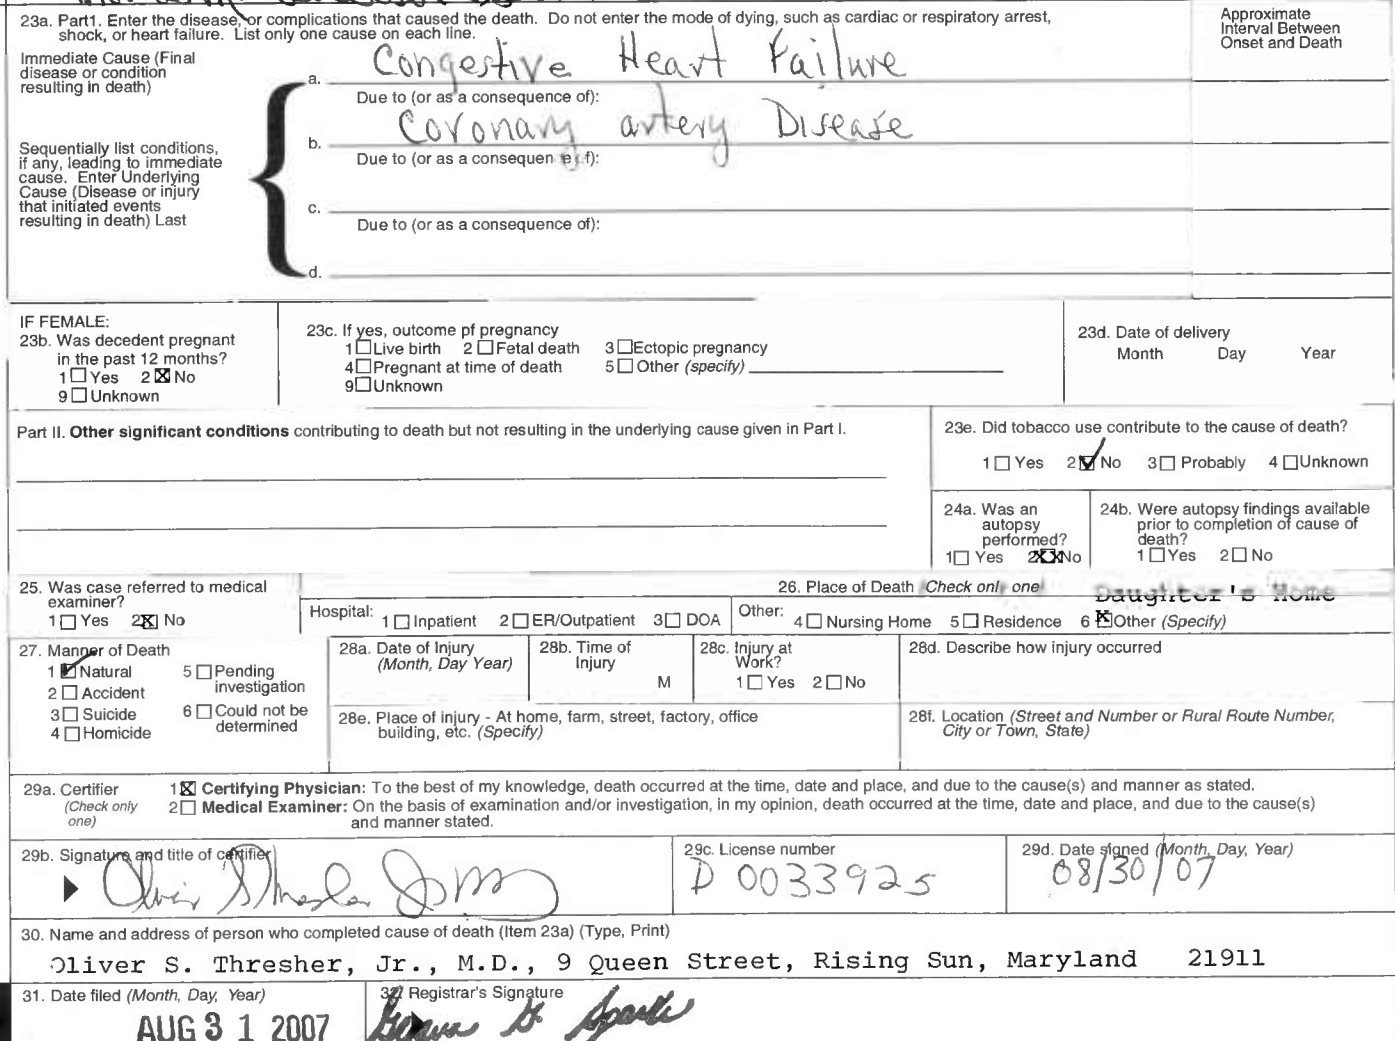 23a. Part1. Enter the disease, or complications that caused the death. Do not enter the mode of dying, such as cardiac or respiratory arrest,
shock, or heart failure. List only one cause on each line.
Approximate
Interval Between
Onset and Death
Immediate Cause (Final
disease or condition
resulting in death)
a. Congestive Heart Failure
Due to (or as a consequence of):
b. Coronary artery Disease
Due to (or as a consequen e f):
Sequentially list conditions,
if any, leading to immediate
cause. Enter Underlying
Cause (Disease or injury
that initiated events
resulting in death) Last
c.
Due to (or as a consequence of):
d.
IF FEMALE:
23b. Was decedent pregnant
in the past 12 months?
1 ☐ Yes 2 ☒ No
9 ☐ Unknown
23c. If yes, outcome pf pregnancy
1 ☐ Live birth 2 ☐ Fetal death 3 ☐ Ectopic pregnancy
4 ☐ Pregnant at time of death 5 ☐ Other (specify)
9 ☐ Unknown
23d. Date of delivery
Month Day Year
Part II. Other significant conditions contributing to death but not resulting in the underlying cause given in Part I.
23e. Did tobacco use contribute to the cause of death?
1 ☐ Yes 2 ☑ No 3 ☐ Probably 4 ☐ Unknown
24a. Was an
autopsy
performed?
1 ☐ Yes 2 ☒ No
24b. Were autopsy findings available
prior to completion of cause of
death?
1 ☐ Yes 2 ☐ No
25. Was case referred to medical
examiner?
1 ☐ Yes 2 ☒ No
26. Place of Death (Check only one)
Daughter's Home
Hospital: 1 ☐ Inpatient 2 ☐ ER/Outpatient 3 ☐ DOA
Other: 4 ☐ Nursing Home 5 ☐ Residence 6 ☒ Other (Specify)
27. Manner of Death
1 ☑ Natural 5 ☐ Pending
investigation
2 ☐ Accident
3 ☐ Suicide 6 ☐ Could not be
determined
4 ☐ Homicide
28a. Date of Injury
(Month, Day Year)
28b. Time of
Injury
M
28c. Injury at
Work?
1 ☐ Yes 2 ☐ No
28d. Describe how injury occurred
28e. Place of injury - At home, farm, street, factory, office
building, etc. (Specify)
28f. Location (Street and Number or Rural Route Number,
City or Town, State)
29a. Certifier
(Check only
one)
1 ☒ Certifying Physician: To the best of my knowledge, death occurred at the time, date and place, and due to the cause(s) and manner as stated.
2 ☐ Medical Examiner: On the basis of examination and/or investigation, in my opinion, death occurred at the time, date and place, and due to the cause(s)
and manner stated.
29b. Signature and title of certifier
29c. License number
D 0033925
29d. Date signed (Month, Day, Year)
08/30/07
30. Name and address of person who completed cause of death (Item 23a) (Type, Print)
Oliver S. Thresher, Jr., M.D., 9 Queen Street, Rising Sun, Maryland 21911
31. Date filed (Month, Day, Year)
AUG 31 2007
32. Registrar's Signature